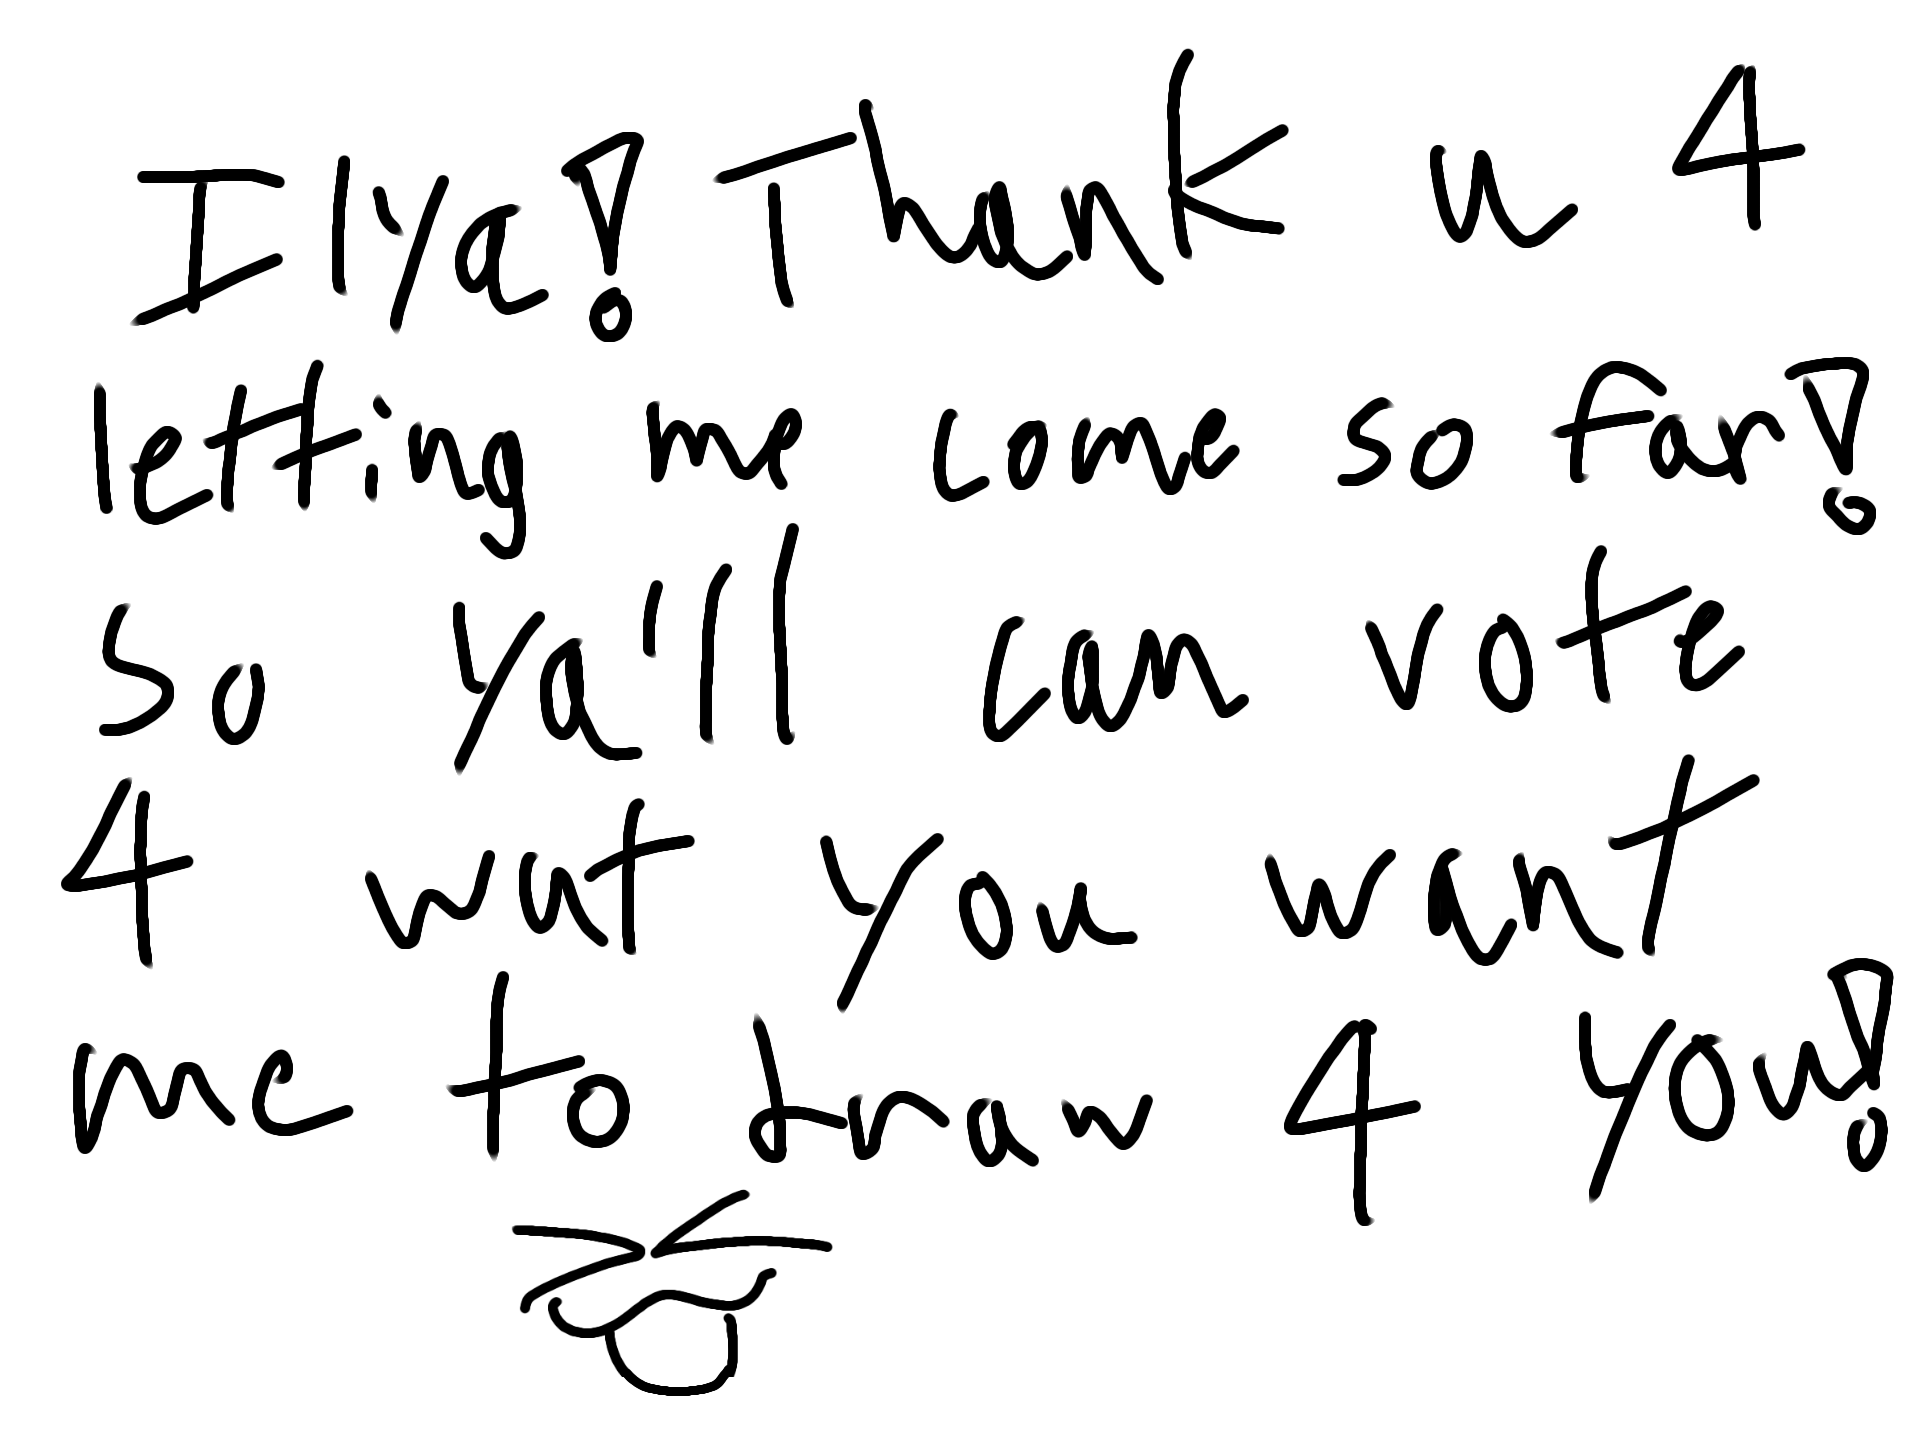 Ilya! Thank u 4
letting me come so far!
So ya'll can vote
4 wut you want
me to draw 4 you!